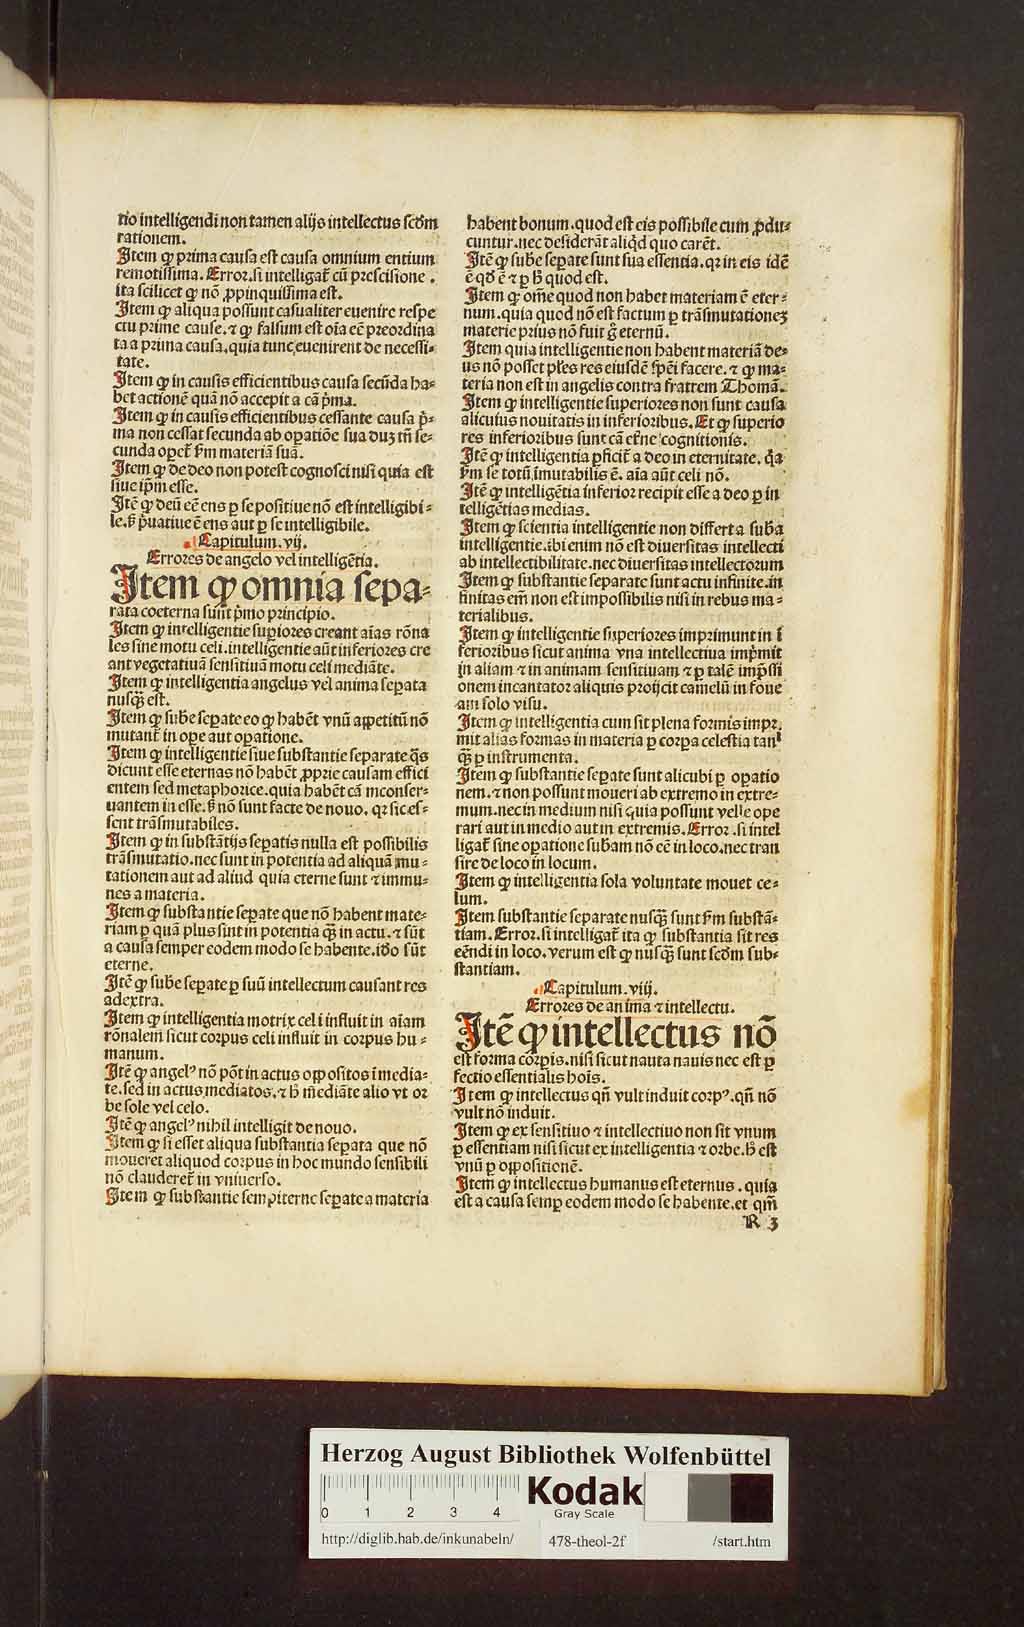 tio intelligendi non tamen alijs intellectus scd̄m
rationem.
Item ꝙ prima causa est causa omnium entium
remotissima. Error. si intelligat᷑ cū prescisione.
ita scilicet ꝙ nō ꝓpinquissima est.
Item ꝙ aliqua possunt casualiter euenire respe
ctu prime cause. ⁊ ꝙ falsum est oīa eē preordina
ta a prima causa. quia tunc euenirent de necessi⸗
tate.
Item ꝙ in causis efficientibus causa secūda ha⸗
bet actionē quā nō accepit a cā p̄ma.
Item ꝙ in causis efficientibus cessante causa p̄⸗
ma non cessat secunda ab oꝑatiōe sua duꝫ tn̄ se⸗
cunda oꝑet᷑ ẜm materiā suā.
Item ꝙ de deo non potest cognosci nisi quia est
siue ip̄m esse.
Itē ꝙ deū eē ens ꝑ se positiue nō est intelligibi⸗
le. ẜ p̄uatiue ē ens aut ꝑ se intelligibile.
Capitulum. vij.
Errores de angelo vel intelligētia.
Item ꝙ omnia sepa⸗
rata coeterna sunt p̄mo principio.
Item ꝙ intelligentie suꝑiores creant aīas rōna
les sine motu celi. intelligentie aūt inferiores cre
ant vegetatiuā sensitiuā motu celi mediāte.
Item ꝙ intelligentia angelus vel anima seꝑata
nusqꝫ est.
Item ꝙ sub̄e seꝑate eo ꝙ habēt vnū appetitū nō
mutant᷑ in oꝑe aut oꝑatione.
Item ꝙ intelligentie siue substantie separate q̄s
dicunt esse eternas nō habēt ꝓprie causam effici
entem sed metaphorice. quia habēt cā mconser⸗
uantem in esse. ẜ nō sunt facte de nouo. qꝛ sic es⸗
sent trāsmutabiles.
Item ꝙ in substātijs seꝑatis nulla est possibilis
trāsmutatio. nec sunt in potentia ad aliquā mu⸗
tationem aut ad aliud quia eterne sunt ⁊ immu⸗
nes a materia.
Item ꝙ substantie seꝑate que nō habent mate⸗
riam ꝑ quā plus sint in potentia qꝫ in actu. ⁊ sūt
a causa semper eodem modo se habente. iđo sūt
eterne.
Itē ꝙ sub̄e seꝑate ꝑ suū intellectum causant res
ad extra.
Item ꝙ intelligentia motrix celi influit in aīam
rōnalem sicut corpus celi influit in corpus hu⸗
manum.
Itē ꝙ angelꝰ nō pōt in actus oppositos īmedia⸗
te. sed in actus mediatos. ⁊ h̄ mēdiāte alio vt or
be sole vel celo.
Itē ꝙ angelꝰ nihil intelligit de nouo.
Item ꝙ si esset aliqua substantia seꝑata que nō
moueret aliquod corpus in hoc mundo sensibili
nō clauderet᷑ in vniuerso.
Item ꝙ substantie sempiterne seꝑate a materia
habent bonum. quod est eis possibile cum ꝓdu⸗
cuntur. nec desiderāt aliqd̄ quo carēt.
Itē ꝙ sub̄e seꝑate sunt sua essentia. qꝛ in eis idē
ē qđ ē ⁊ ꝑ h̄ quod est.
Item ꝙ om̄e quod non habet materiam ē eter⸗
num. quia quod nō est factum ꝑ trāsmutationeꝫ
materie prius nō fuit g̊ eternū.
Item quia intelligentie non habent materiā de⸗
us nō posset pl̄es res eiusdē sp̄ei facere. ⁊ ꝙ ma⸗
teria non est in angelis contra fratrem Thomā.
Item ꝙ intelligentie superiores non sunt causa
alicuius nouitatis in inferioribus. Et ꝙ superio
res inferioribus sunt cā et̄ne cognitionis.
Itē ꝙ intelligentia ꝑficit᷑ a deo in eternitate. q̄a
ẜm se totū imutabilis ē. aīa aūt celi nō.
Itē ꝙ intelligētia inferior recipit esse a deo ꝑ in
telligētias medias.
Item ꝙ scientia intelligentie non differt a sub̄a
intelligentie. ibi enim nō est diuersitas intellecti
ab intellectibilitate. nec diuersitas intellectorum
Item ꝙ substantie separate sunt actu infinite. in
finitas em̄ non est impossibilis nisi in rebus ma⸗
terialibus.
Item ꝙ intelligentie superiores imprimunt in ī
ferioribus sicut anima vna intellectiua imp̄mit
in aliam ⁊ in animam sensitiuam ⁊ ꝑ talē imp̄ssi
onem incantator aliquis proijcit camelū in foue
am solo visu.
Item ꝙ intelligentia cum sit plena formis impr.
mit alias formas in materia ꝑ corpa celestia tanꝰ
qꝫ ꝑ instrumenta.
Item ꝙ substantie seꝑate sunt alicubi ꝑ oꝑatio
nem. ⁊ non possunt moueri ab extremo in extre⸗
mum. nec in medium nisi quia possunt velle ope
rari aut in medio aut in extremis. Error. si intel
ligat᷑ sine oꝑatione sub̄am nō eē in loco. nec tran
sire de loco in locum.
Item ꝙ intelligentia sola voluntate mouet ce⸗
lum.
Item substantie separate nusqꝫ sunt ẜm substā⸗
tiam. Error. si intelligat᷑ ita ꝙ substantia sit res
eēndi in loco. verum est ꝙ nusqꝫ sunt scd̄m sub⸗
stantiam.
Capitulum. viij.
Errores de anima ⁊ intellectu.
Itē ꝙ intellectus nō
est forma corꝑis. nisi sicut nauta nauis nec est ꝑ
fectio essentialis hoīs.
Item ꝙ intellectus qn̄ vult induit corpꝰ. qn̄ nō
vult nō induit.
Item ꝙ ex sensitiuo ⁊ intellectiuo non sit vnum
ꝑ essentiam nisi sicut ex intelligentia ⁊ orbe. h̄ est
vnū ꝑ oppositionē.
Item ꝙ intellectus humanus est eternus. quia
est a causa semꝑ eodem modo se habente. et qm̄
R 3
Herzog August Bibliothek Wolfenbüttel
0 1 2 3 4
Kodak
Gray Scale
http://diglib.hab.de/inkunabeln/ 478-theol-2f /start.htm